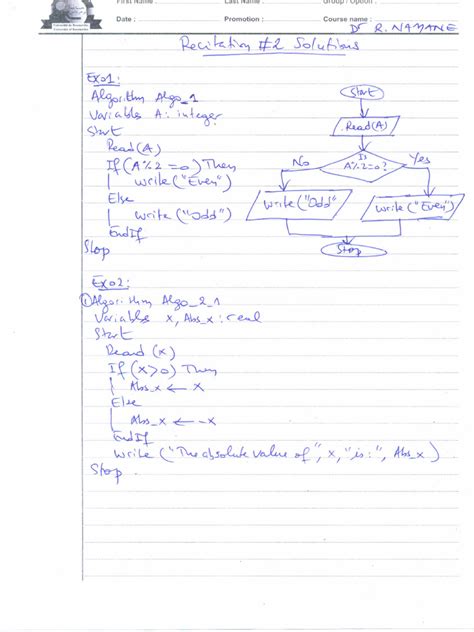 First Name :
Last Name :
Group / Option :
Date :
Promotion :
Course name :
Dr R. NAMANE
Recitation #2 Solutions
Exo1:
Algorithm Algo_1
Variables A: integer
Start
Read(A)
If (A%2 = 0) Then
write("Even")
Else
write("Odd")
EndIf
Stop
Start
Read(A)
Is
A%2=0?
No
Yes
write("Odd"
write("Even")
Stop
Exo2:
① Algorithm Algo_2_1
Variables x, Abs_x: real
Start
Read (x)
If (x>0) Then
Abs_x ← x
Else
Abs_x ← -x
EndIf
Write ("The absolute value of", x, "is:", Abs_x)
Stop.